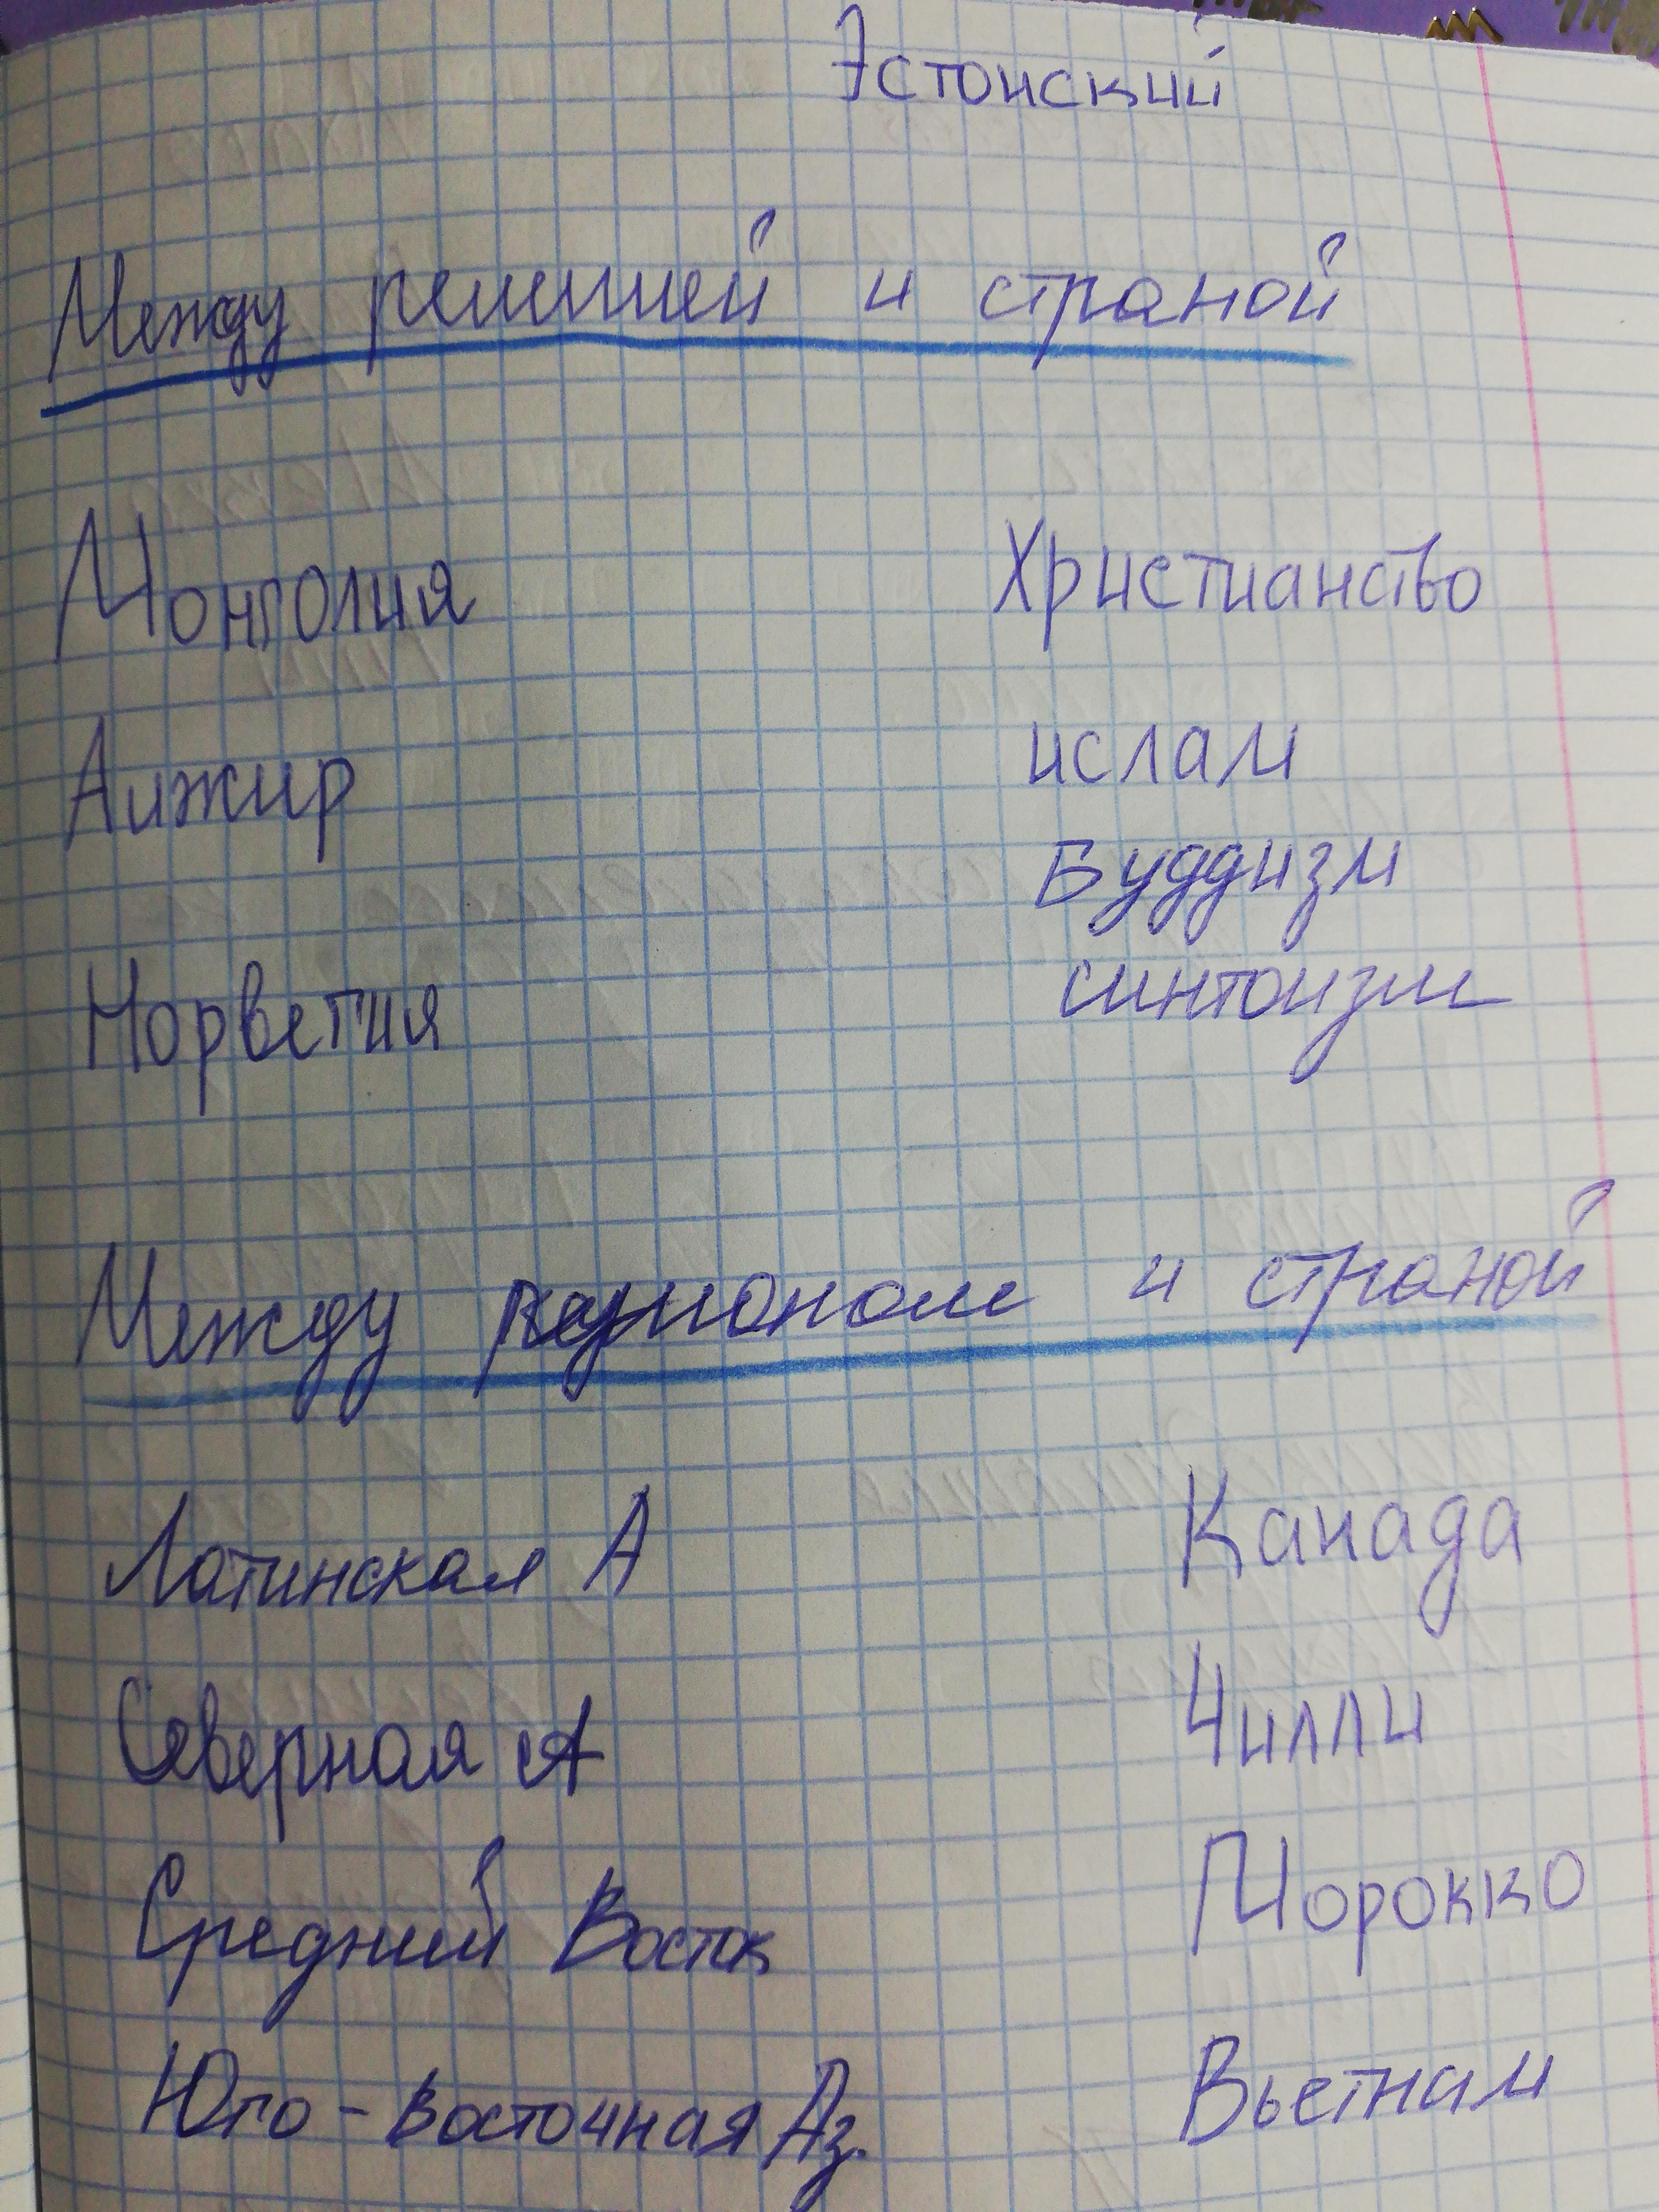 Эстонский
Между религией и страной
Монголия Христианство
Алжир ислам
Буддизм
Норвегия синтоизм
Между регионом и страной
Латинская А Канада
Северная А Чилли
Средний Восток Морокко
Юго-восточная Аз. Вьетнам